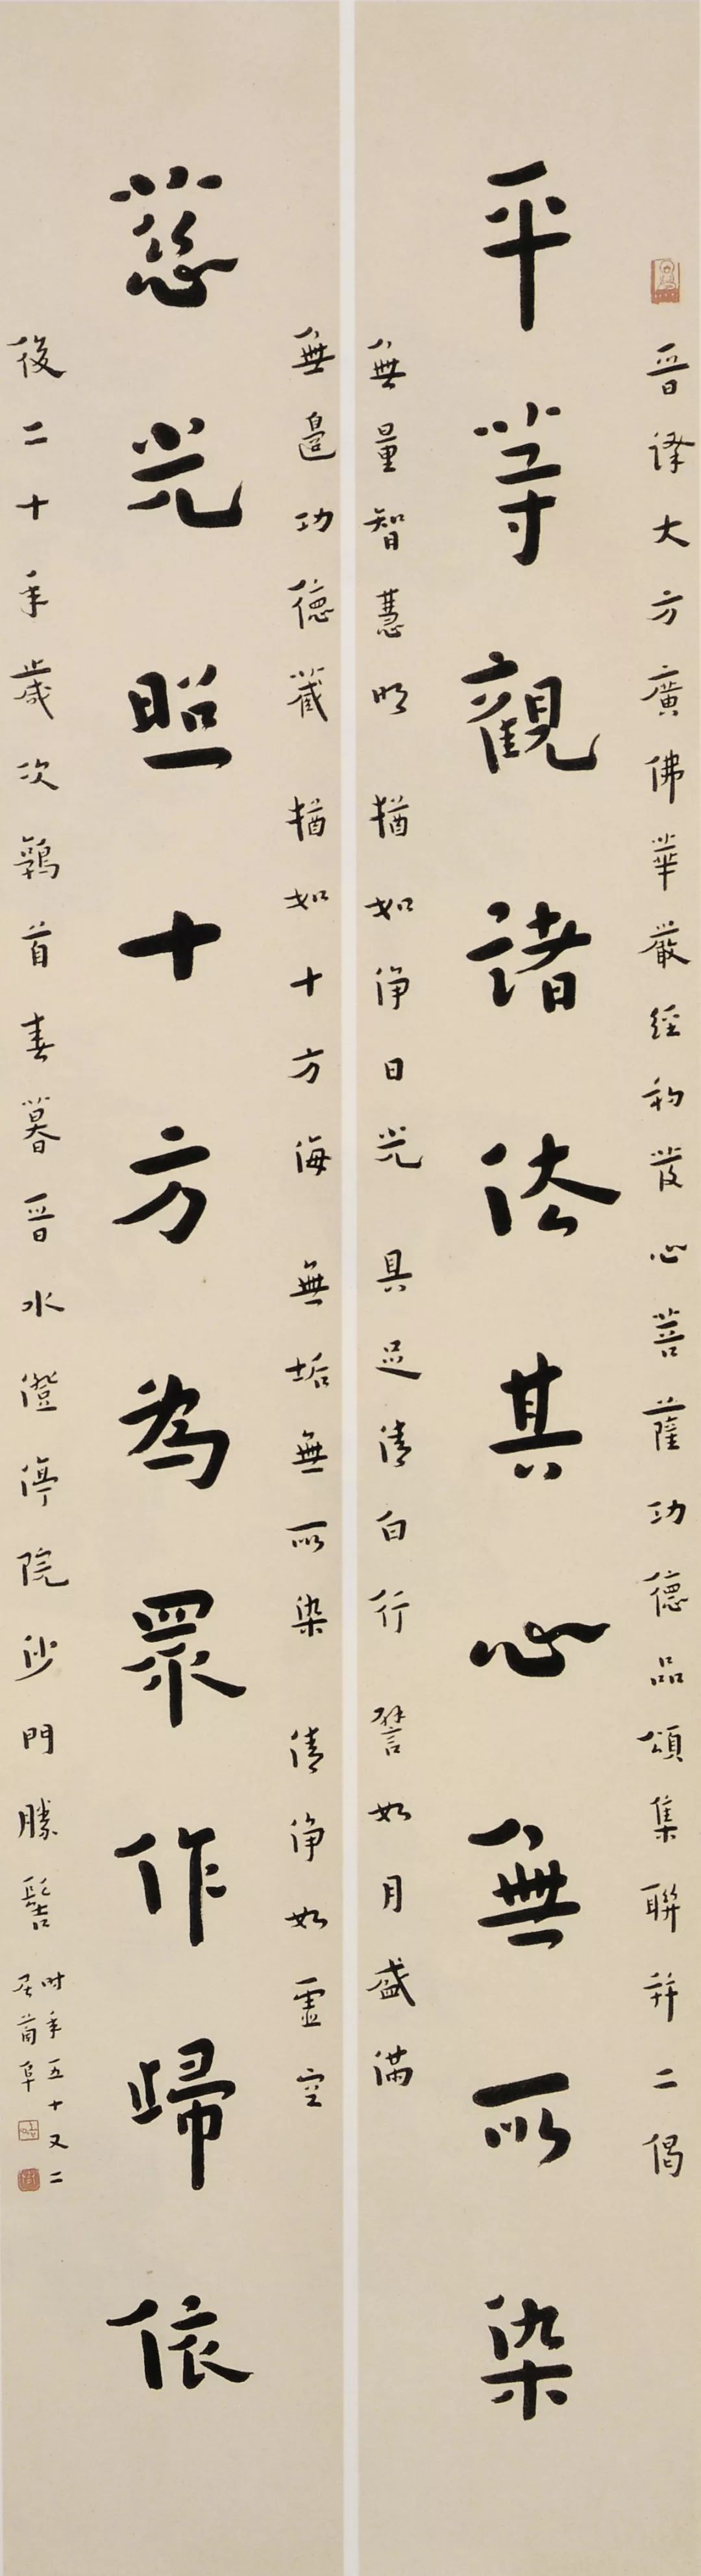 晉譯大方廣佛華嚴經初發心菩薩功德品頌集聯并二偈
平等觀諸法其心無所染
無量智慧明 猶如淨日光 具足清白行 譬如月盛滿
無邊功德藏 猶如十方海 無垢無所染 清淨如虛空
慈光照十方為眾作歸依
後二十年歲次鶉首春暮晉水澄停院沙門勝髻
時年五十又二
居莆阜